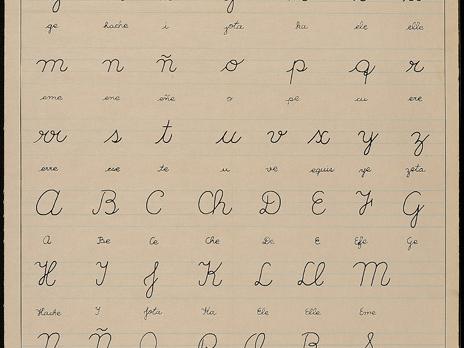 ge hache i jota ka ele elle
m n ñ o p q r
eme ene eñe o pe cu ere
rr s t u v x y z
erre ese te u ve equis ye zeta
A B C Ch D E F G
A Be Ce Che De E Efe Ge
H I J K L Ll M
Hache I Jota Ka Ele Elle Eme
N Ñ O P Q R S